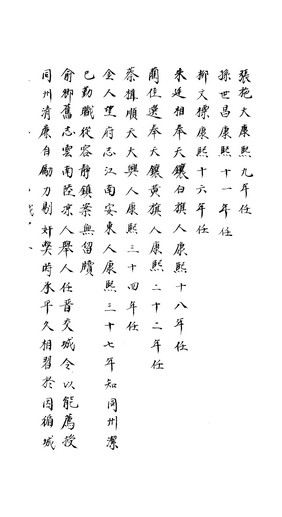 張施大康熙九年任
孫世昌康熙十一年任
柳文標康熙十六年任
朱廷相奉天鑲白旗人康熙十八年任
藺佳選奉天鑲黃旗人康熙二十二年任
蔡楫順天大興人康熙三十四年任
金人望府志江南安東人康熙三十七年知同州潔
己勤職從容靜鎮案無留牘
俞卿舊志雲南陸凉人舉人任晉交城令以能薦授
同州清廉自勵力剔奸獘時承平久相習於因循城